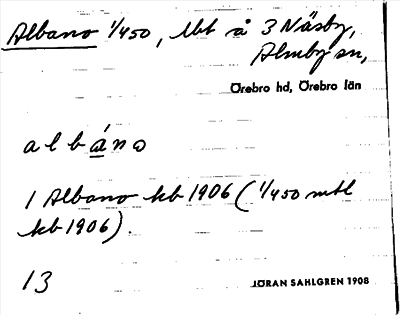 Albano 1/450, lht å 3 Näsby,
Almby sn,
Örebro hd, Örebro län
a l b á n o
1 Albano kb 1906 (1/450 mtl
kb 1906).
13
JÖRAN SAHLGREN 1908